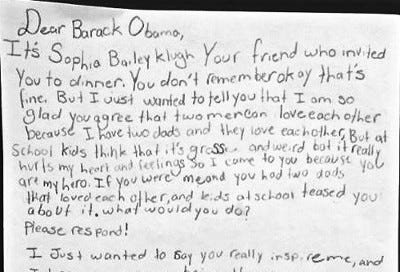 Dear Barack Obama,
It's Sophia Bailey Klugh Your friend who invited
You to dinner. You don't remember okay that's
fine. But I Just wanted to tell you that I am so
glad you agree that two men can love each other
because I have two dads and they love each other, But at
school kids think that it's gross and weird but it really
hurts my heart and feelings So I come to you because you
are my hero. If you were me and you had two dads
that loved each other, and kids at school teased you
about it, what would you do?
Please respond!
I Just wanted to say you really inspire me, and